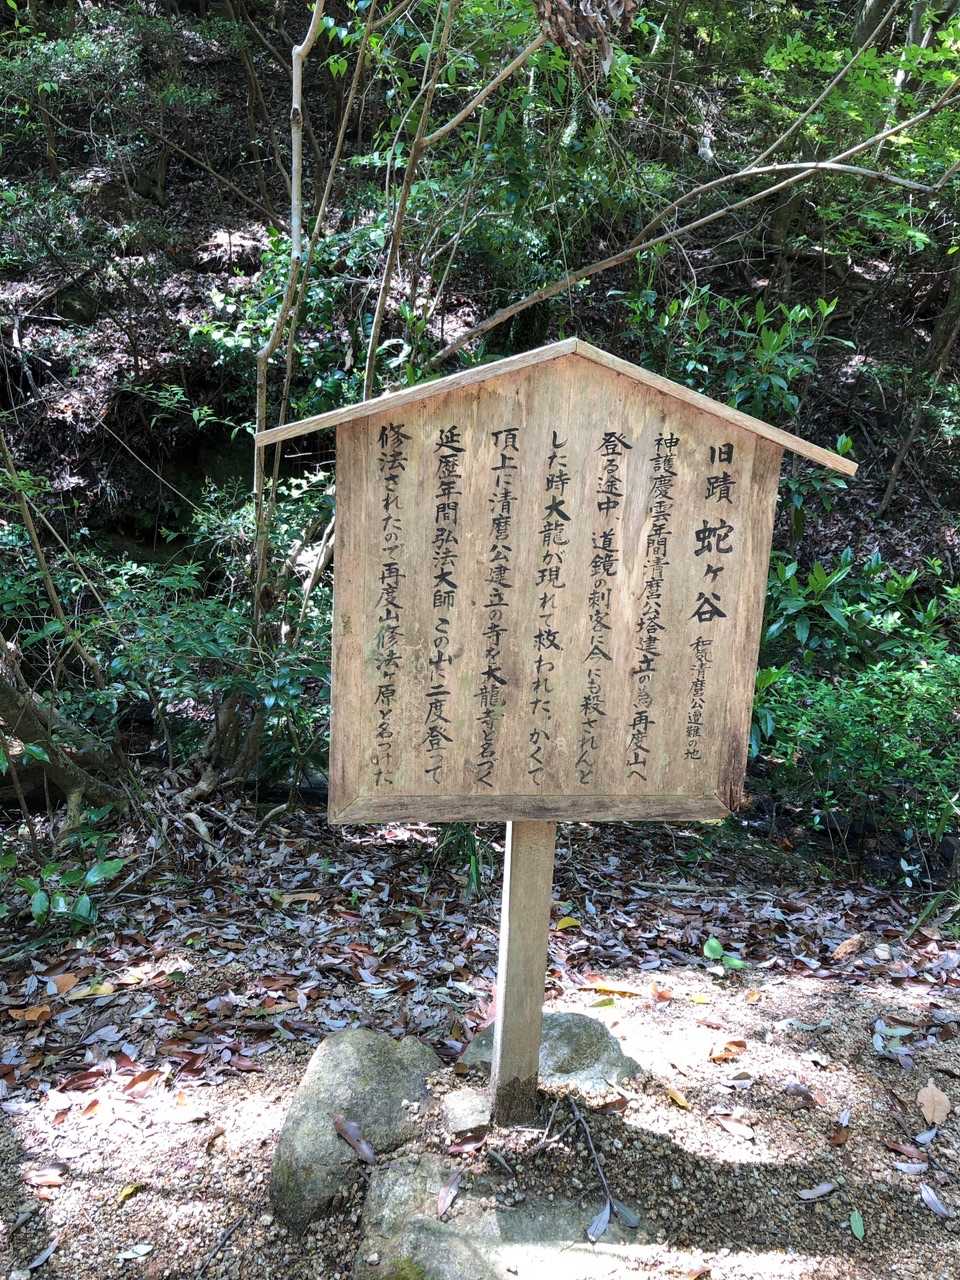 旧蹟 蛇ヶ谷 和気清麿公遭難の地
神護慶雲年間清麿公塔建立の為再度山へ
登る途中、道鏡の刺客に今にも殺されんと
した時大龍が現れて救われた。かくて
頂上に清麿公建立の寺を大龍寺と名づく
延歴年間弘法大師 この山に二度登って
修法されたので再度山修法ヶ原と名づけた